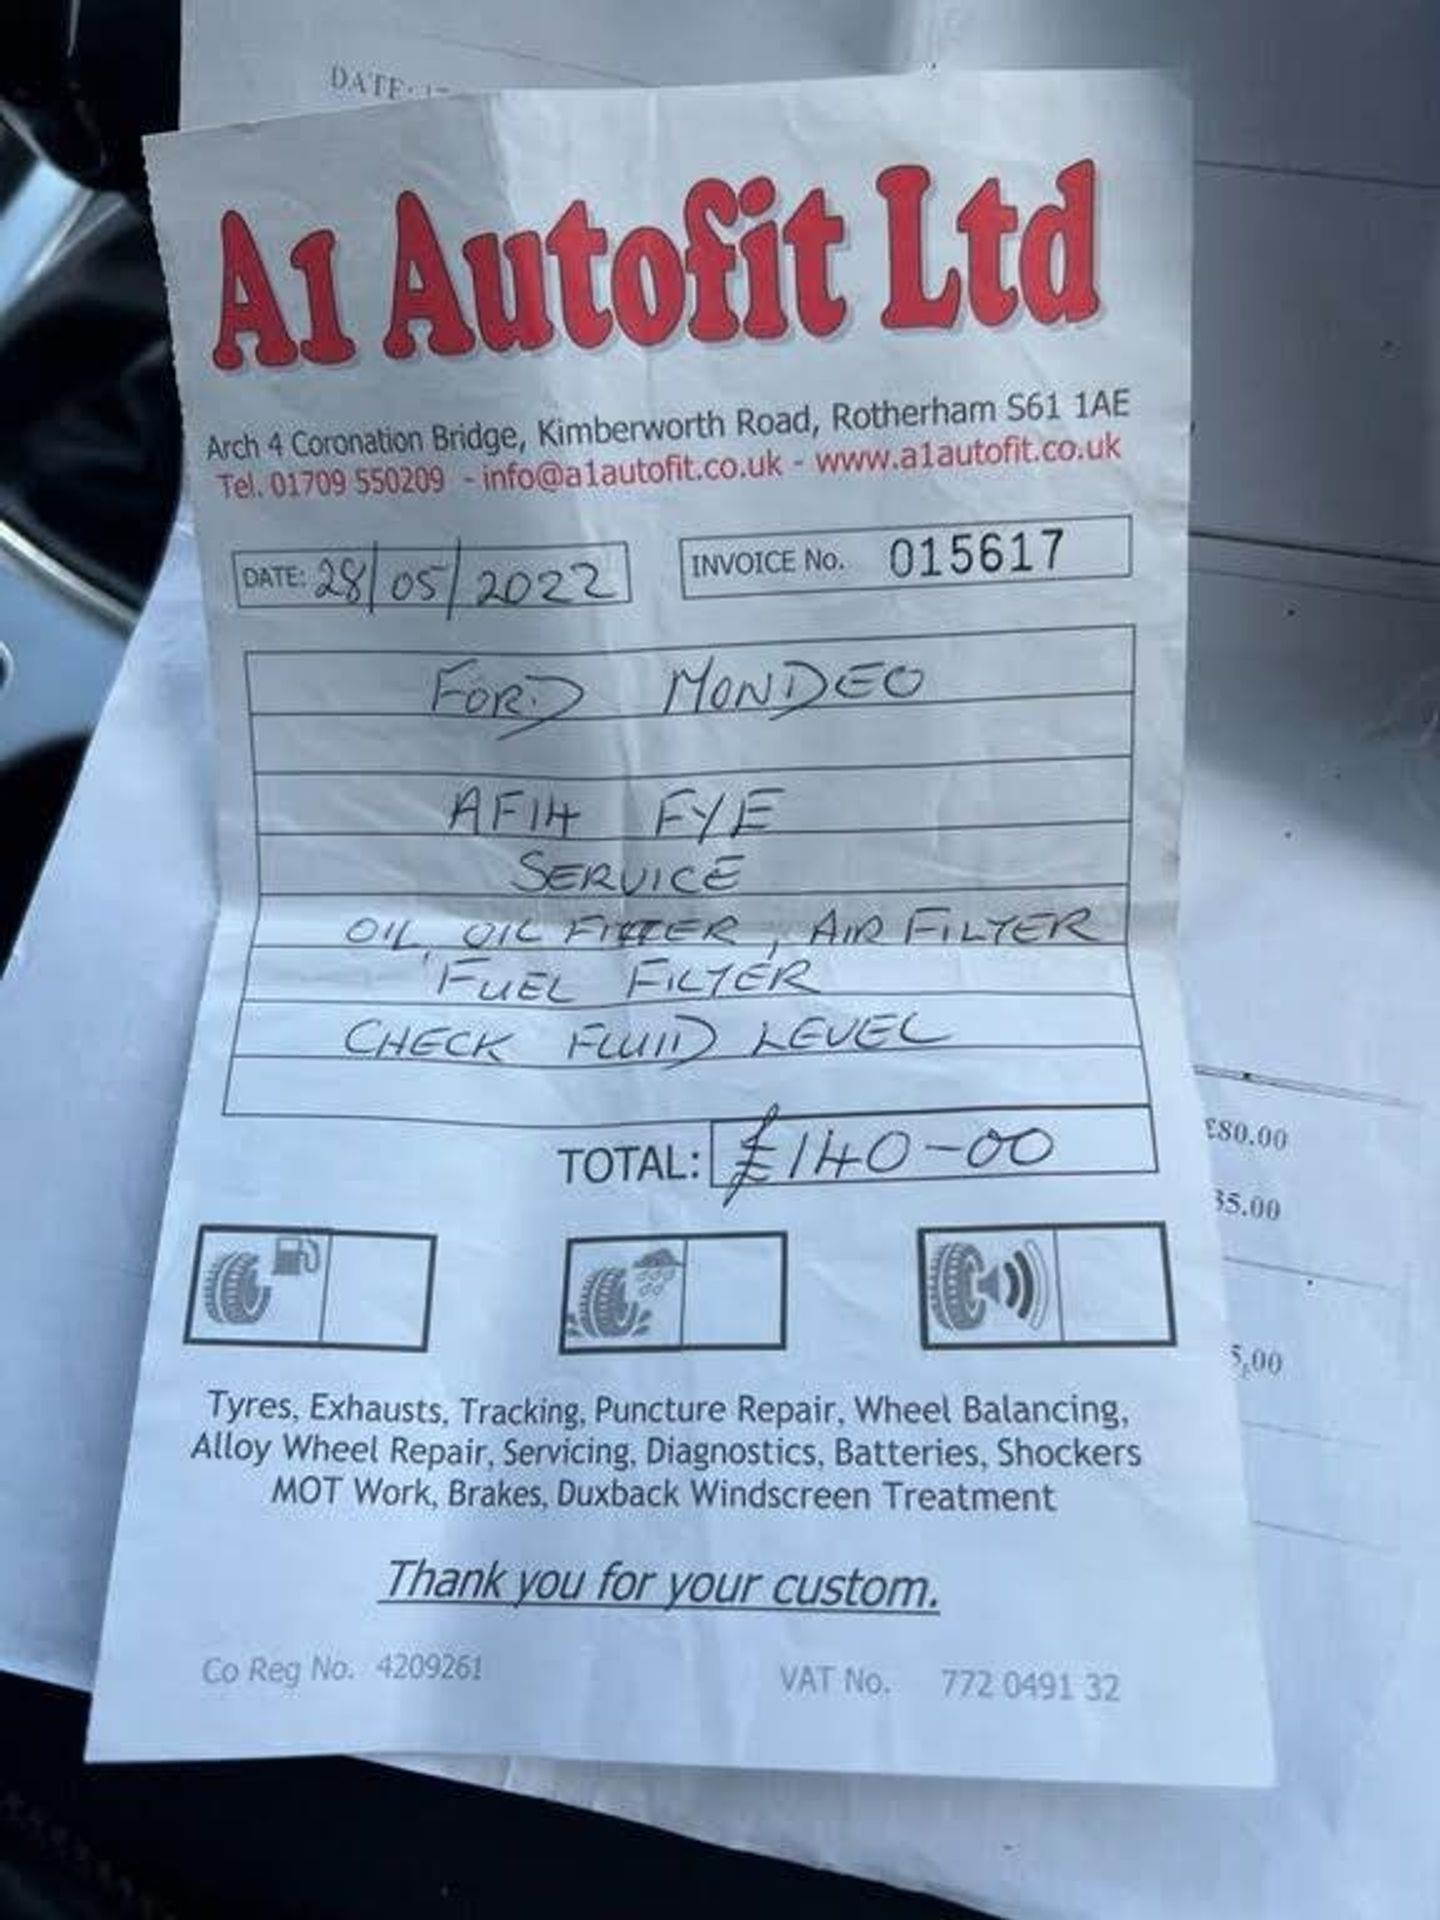 DATE:
A1 Autofit Ltd
Arch 4 Coronation Bridge, Kimberworth Road, Rotherham S61 1AE
Tel. 01709 550209 - info@a1autofit.co.uk - www.a1autofit.co.uk
DATE: 28/05/2022 INVOICE No. 015617
FORD MONDEO
AF14 FYE
SERVICE
OIL, OIL FILTER, AIR FILTER
FUEL FILTER
CHECK FLUID LEVEL
TOTAL: £140-00
£80.00
35.00
5.00
Tyres, Exhausts, Tracking, Puncture Repair, Wheel Balancing,
Alloy Wheel Repair, Servicing, Diagnostics, Batteries, Shockers
MOT Work, Brakes, Duxback Windscreen Treatment
Thank you for your custom.
Co Reg No. 4209261 VAT No. 772 0491 32